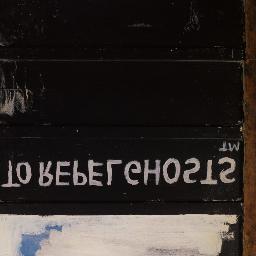 TO REPEL GHOSTS™